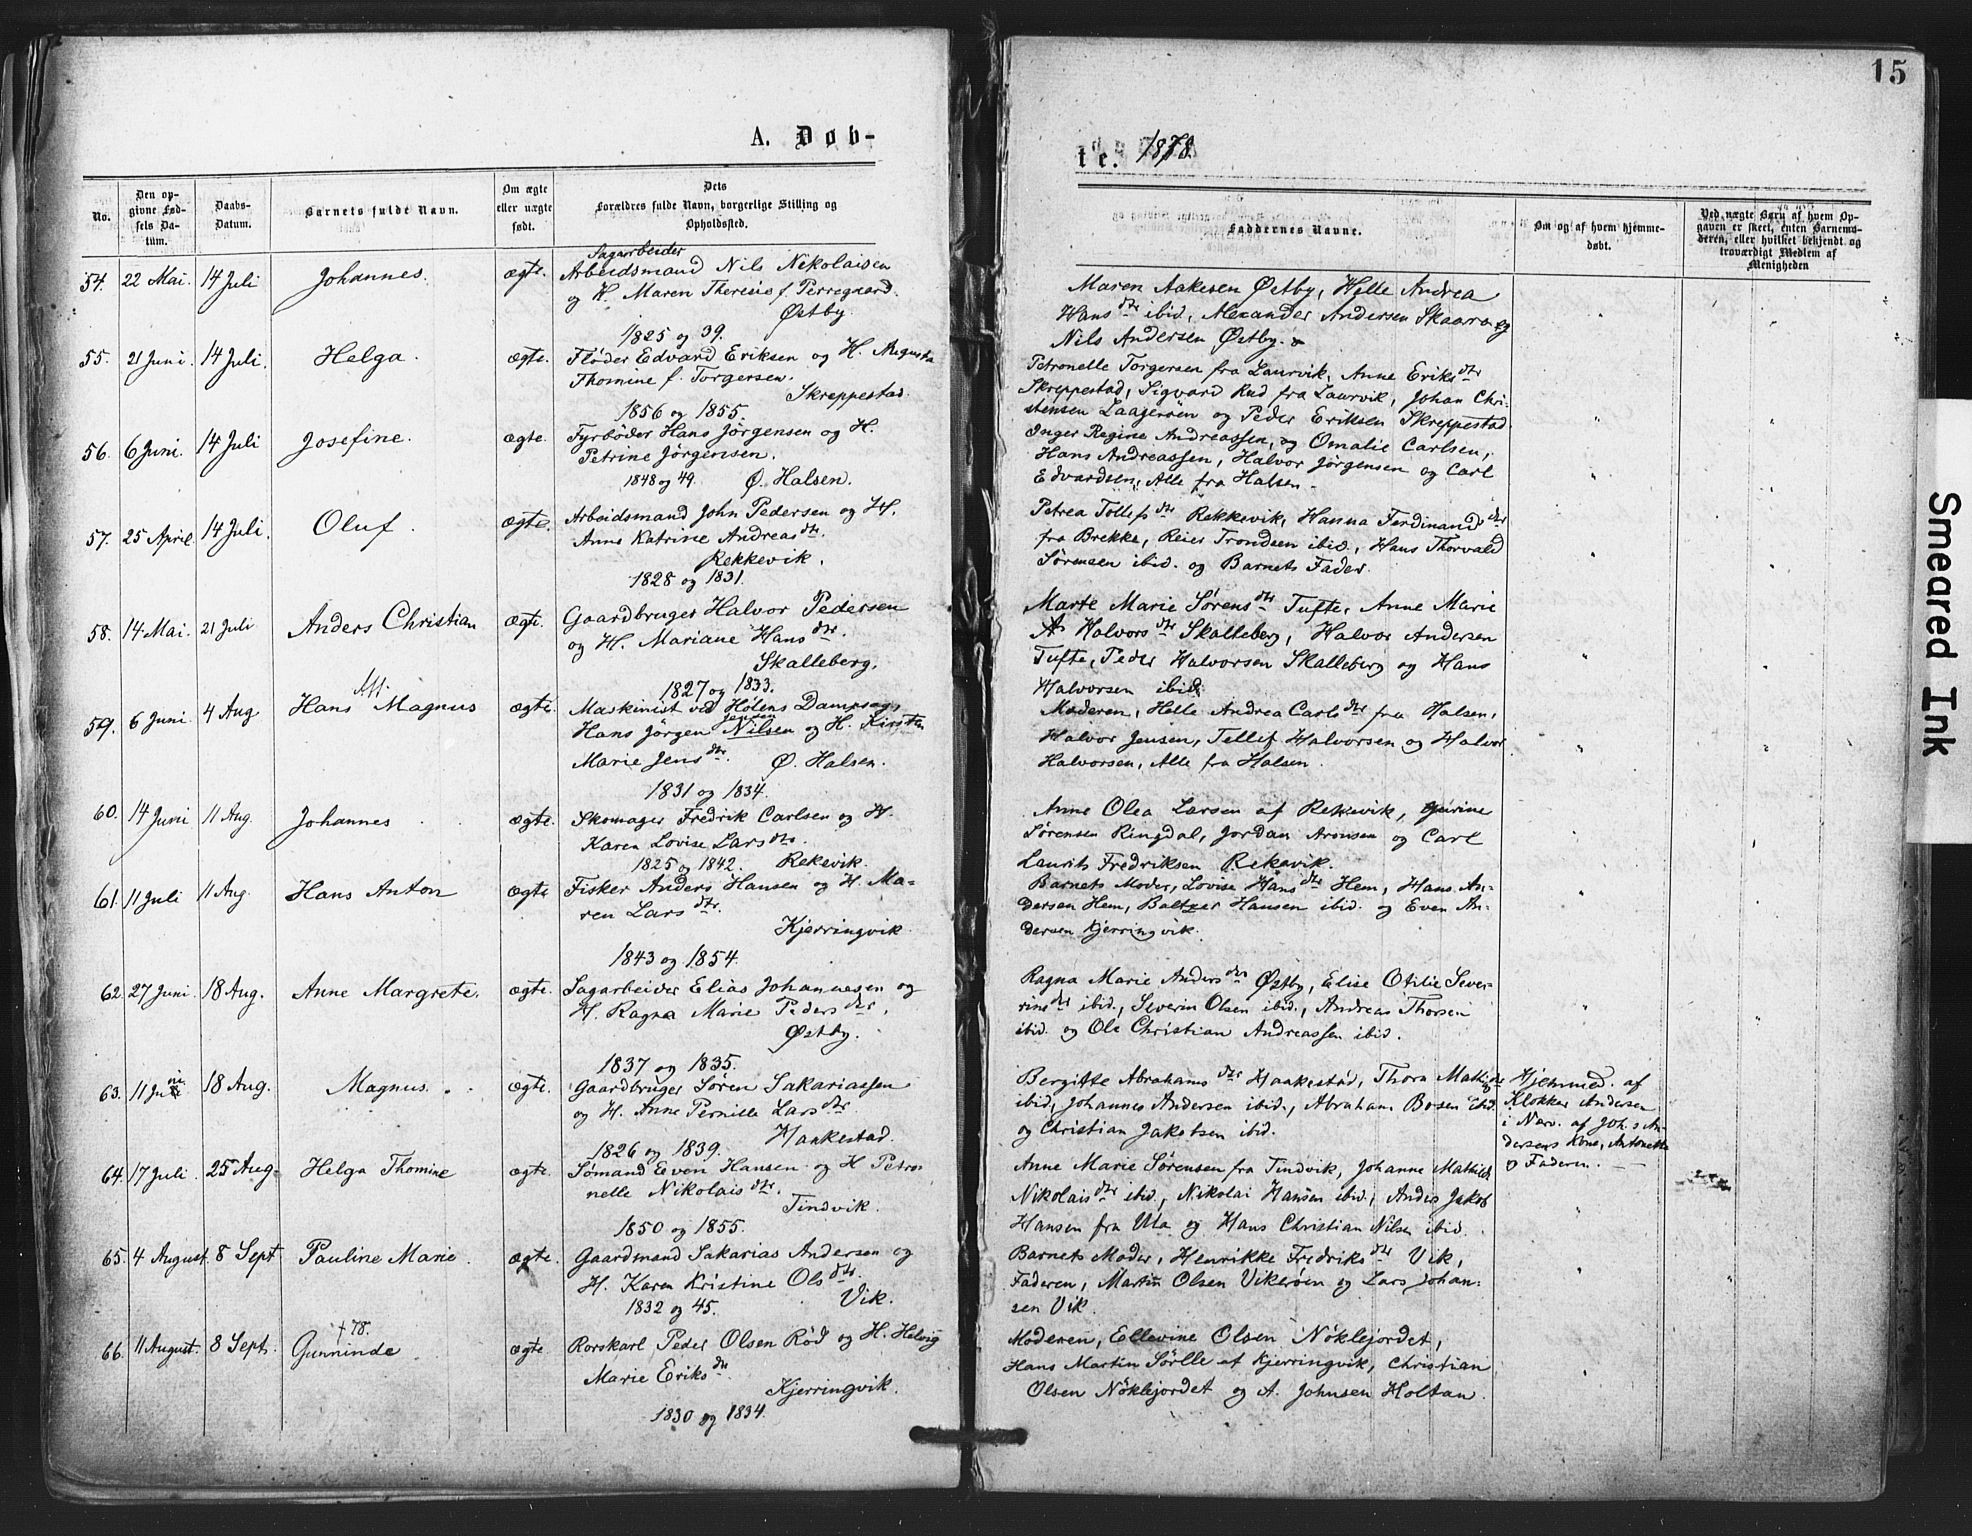 15
A. Døb-
te. 1878.
No.
Den op-
givne Fød-
sels Da-
tum.
Daabs-
Datum.
Barnets fulde Navn.
Om ægte
eller uægte
født.
Dets
Forældres fulde Navn, borgerlige Stilling og
Opholdssted.
Faddernes Navne.
Om og af hvem hjemme-
døbt.
Ved uægte Børn af hvem Op-
gaven er skeet, enten Barnemo-
deren, eller hvilket bekjendt og
troværdigt Medlem af
Menigheden
54. 22 Mai. 14 Juli Johannes. ægte.
Sagarbeider
Arbeidsmand Nils Nikolaisen
og H. Maren Theresie f. Perregaard.
Østby.
1825 og 39.
Maren Aakesen Østby, Helle Andrea
Hansdtr ibid, Alexander Andersen Skaara og
Nils Andersen Østby.
55. 21 Juni. 14 Juli. Helga. ægte.
Fløder Edvard Eriksen og H. Augusta
Thomine f. Torgersen.
Skreppestad.
1856 og 1855.
Petronelle Torgersen fra Laurvik, Anne Eriksdtr
Skreppestad, Sigvard Rud fra Laurvik, Johan Chri-
stensen Laagerøen og Peder Eriksen Skreppestad.
56. 6 Juni. 14 Juli Josefine. ægte.
Fyrbøder Hans Jörgensen og H.
Petrine Jörgensen.
1848 og 49. Ø. Halsen.
Inger Regine Andreassen, og Omalie Carlsen,
Hans Andreassen, Halvor Jörgensen og Carl
Edvardsen, Alle fra Halsen.
57. 25 April. 14 Juli. Oluf. ægte.
Arbeidsmand John Pedersen og H.
Anne Katrine Andreasdtr.
Rekkevik.
1828 og 1831.
Petrea Tollefsdtr Rekkevik, Hanna Ferdinandsdtr
fra Brekke, Reier Trondsen ibid., Hans Thorvald
Sørensen ibid. og Barnets Fader.
58. 14 Mai. 21 Juli Anders Christian ægte.
Gaardbruger Halvor Pedersen
og H. Mariane Hansdtr.
Skalleberg.
1827 og 1833.
Marte Marie Sørensdtr Tufte, Anne Marie
Halvorsdtr Skalleberg, Halvor Andersen
Tufte, Peder Halvorsen Skalleberg og Hans
Halvorsen ibid.
59. 6 Juni 4 Aug Hans Magnus ægte.
Maskinist ved Holens Dampsag,
Jensen
Hans Jörgen Nilsen og H. Kirsten
Marie Jensdtr. Ø. Halsen.
1831 og 1834.
Moderen, Helle Andrea Carlsdtr fra Halsen,
Halvor Jensen, Tellef Halvorsen og Halvor
Halvorsen, Alle fra Halsen.
60. 14 Juni 11 Aug. Johannes ægte.
Skomager Fredrik Carlsen og H.
Karen Lovise Larsdtr.
1825 og 1842. Rekevik.
Anne Olea Larsen af Rekevik, Gurine
Sørensen Ringdal, Jordan Aronsen og Carl
Laurits Fredriksen Rekevik.
61. 11 Juli 11 Aug. Hans Anton ægte
Fisker Anders Hansen og H. Ma-
ren Larsdtr.
Kjerringvik.
1843 og 1854.
Barnets Moder, Lovise Hansdtr Hem, Hans An-
dersen Hem, Baltzer Hansen ibid. og Even An-
dersen Kjerringvik.
62. 27 Juni. 18 Aug. Anne Margrete. ægte.
Sagarbeider Elias Johannesen og
H. Ragna Marie Pedersdtr.
Østby.
1837 og 1835.
Ragna Marie Andersdtr Østby, Elise Otilie Seve-
rinsdtr ibid., Severin Olsen ibid., Andreas Thorsen
ibid. og Ole Christian Andreassen ibid.
63. 11 Juni 18 Aug. Magnus. ægte.
Gaardbruger Sören Sakariassen
og H. Anne Pernille Larsdtr
Haakestad.
1826 og 1839.
Bergitte Abrahamsdtr Haakestad, Thora Mathisdtr
ibid, Johannes Andersen ibid., Abraham Bosen ibid.
og Christian Jakobsen ibid.
Hjemmed. af
Klokker Andersen
i Nærv. af Joh.s An-
dersens Kone, Antonette
og Faderen.
64. 17 Juli. 25 Aug. Helga Thomine ægte.
Sømand Even Hansen og H Petro
nelle Nikolaisdtr.
Tindvik.
1850 og 1855.
Anne Marie Sørensen fra Tindvik, Johanne Mathilde
Nikolaisdtr ibid., Nikolai Hansen ibid., Anders Jakob
Hansen fra Ula og Hans Christian Nilsen ibid.
65. 4 August. 8 Sept Pauline Marie. ægte.
Gaardmand Sakarias Andersen og
H. Karen Kristine Olsdtr.
1832 og 45. Vik.
Barnets Moder, Henrikke Fredriksdtr Vik,
Faderen, Martin Olsen Vikerøen og Lars Johan-
sen Vik.
† 78.
66. 11 August. 8 Sept. Gunninde ægte.
Rorskarl Peder Olsen Rød og H. Helvig
Marie Eriksdtr
Kjerringvik.
1830 og 1834.
Moderen, Ellevine Olsen Nöklejordet,
Hans Martin Sørlle af Kjerringvik, Christian
Olsen Nöklejordet og A. Johnsen Holtan.
Smeared Ink